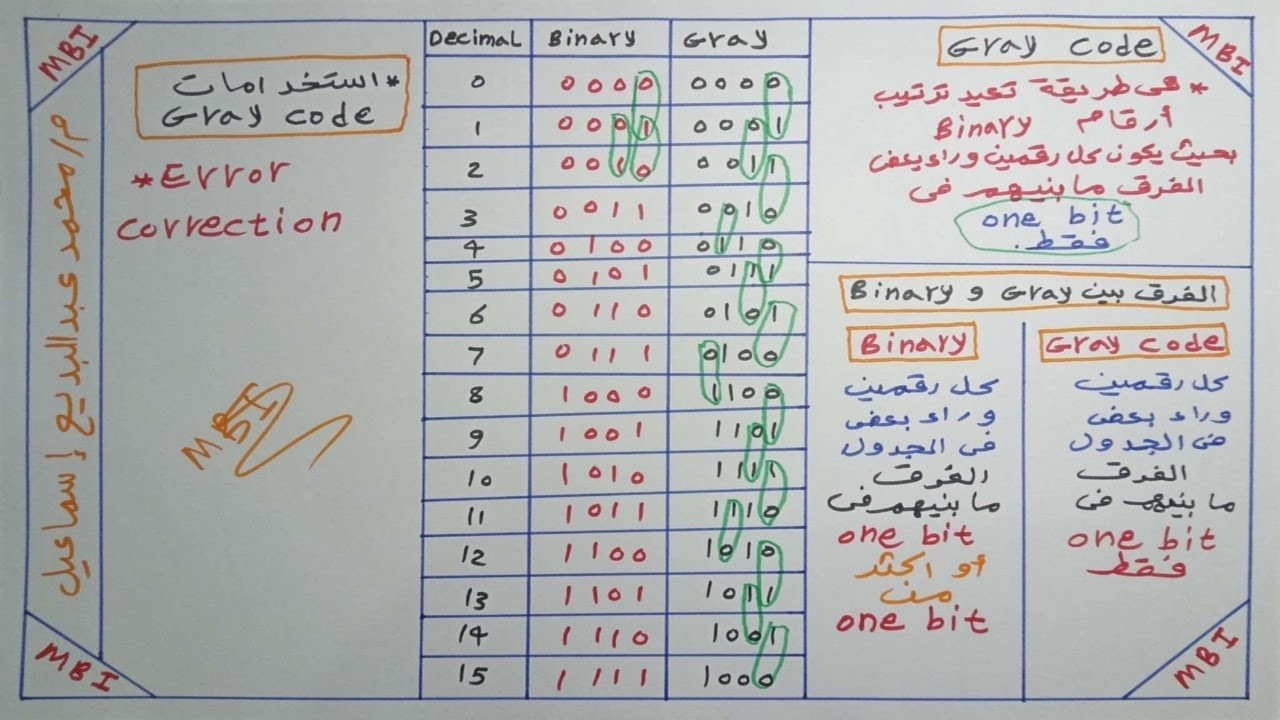 MBI
MBI
م/محمد عبدالبديع إسماعيل
MBI
* استخدامات
Gray code
*Error
correction
MBI
Decimal Binary Gray
0 0000 0000
1 0001 0001
2 0010 0011
3 0011 0010
4 0100 0110
5 0101 0111
6 0110 0101
7 0111 0100
8 1000 1100
9 1001 1101
10 1010 1111
11 1011 1110
12 1100 1010
13 1101 1011
14 1110 1001
15 1111 1000
Gray code
* هى طريقة تعيد ترتيب
أرقام Binary
بحيث يكون كل رقمين وراء بعض
الفرق ما بنيهم فى
one bit
فقط.
الفرق بين Gray و Binary
Gray code
كل رقمين
وراء بعض
فى الجدول
الفرق
ما بنيهم فى
one bit
فقط
Binary
كل رقمين
وراء بعض
فى الجدول
الفرق
ما بنيهم فى
one bit
أو اكثر
من
one bit
MBI